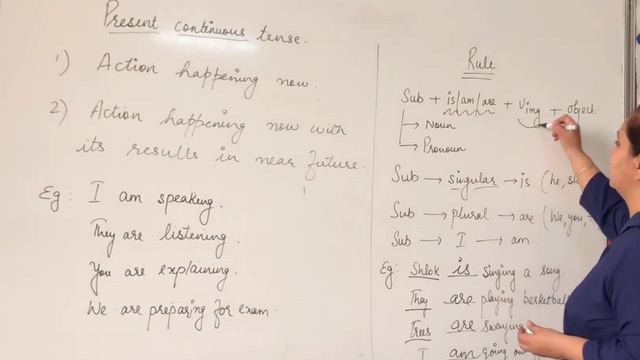 Present continuous tense.
1) Action happening now.
2) Action happening now with
its results in near future.
Eg: I am speaking.
They are listening.
You are explaining.
We are preparing for exam
Rule
Sub + is/am/are + Ving + object.
→ Noun
→ Pronoun
Sub → singular → is (he, sh
Sub → plural → are (We, you,
Sub → I → am.
Eg: Shlok is singing a song
They are playing basketball
Trees are swaying
I am going ou